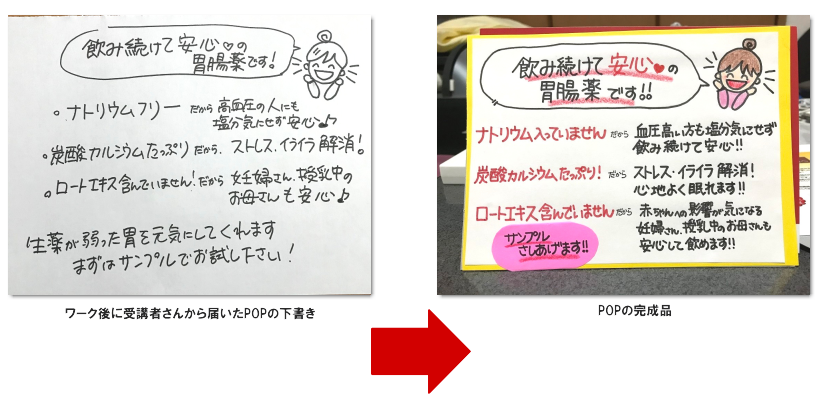 飲み続けて安心♥の
胃腸薬です!
。ナトリウムフリー だから 高血圧の人にも
塩分気にせず安心♪
。炭酸カルシウムたっぷり だから、ストレス、イライラ解消!
。ロートエキス含んでいません!だから 妊婦さん、授乳中の
お母さんも安心♪
生薬が弱った胃を元気にしてくれます
まずはサンプルでお試し下さい!
ワーク後に受講者さんから届いたPOPの下書き
飲み続けて安心♥の
胃腸薬です!!
ナトリウム入っていません だから 血圧高い方も塩分気にせず
飲み続けて安心!!
炭酸カルシウムたっぷり! だから ストレス・イライラ解消!
心地よく眠れます!!
ロートエキス含んでいません だから 赤ちゃんへの影響が気になる
妊婦さん、授乳中のお母さんも
安心して飲めます!!
サンプル
さしあげます!!
POPの完成品